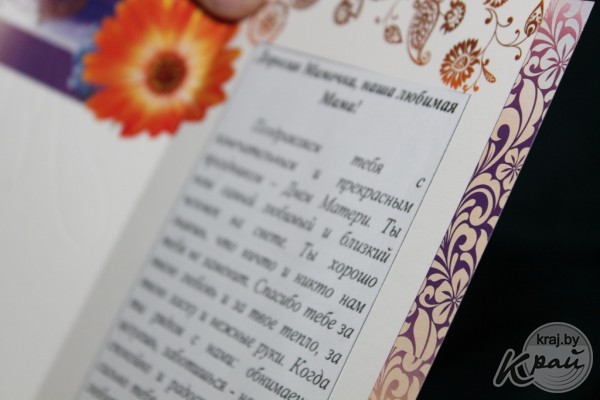 Дорогая Мамочка, наша любимая
Мама!
Поздравляем тебя с
замечательным и прекрасным
праздником - Днем Матери. Ты
наш самый любимый и близкий
человек на свете. Ты хорошо
знаешь, что ничто и никто нам
тебя не заменит. Спасибо тебе за
твою любовь и за твое тепло, за
твою ласку и нежные руки. Когда
ты рядом с нами: обнимаешь
заботишься -
и
kraj.by
Край